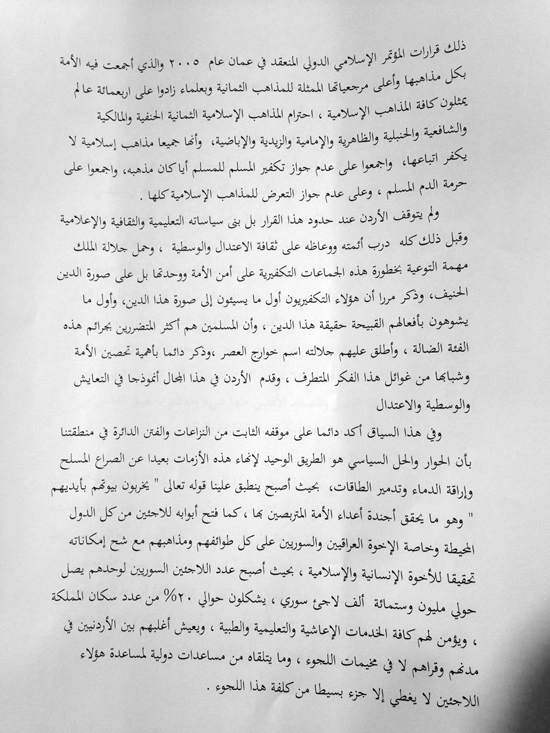 ذلك قرارات المؤتمر الإسلامي الدولي المنعقد في عمان عام ٢٠٠٥ والذي أجمعت فيه الأمة
بكل مذاهبها وأعلى مرجعياتها الممثلة للمذاهب الثمانية وبعلماء زادوا على اربعمائة عالم
يمثلون كافة المذاهب الإسلامية ، احترام المذاهب الإسلامية الثمانية الحنفية والمالكية
والشافعية والحنبلية والظاهرية والإمامية والزيدية والإباضية، وأنها جميعا مذاهب إسلامية لا
يكفر اتباعها، واجمعوا على عدم جواز تكفير المسلم للمسلم أيا كان مذهبه، واجمعوا على
حرمة الدم المسلم ، وعلى عدم جواز التعرض للمذاهب الإسلامية كلها .
ولم يتوقف الأردن عند حدود هذا القرار بل بنى سياساته التعليمية والثقافية والإعلامية
وقبل ذلك كله درب أئمته ووعاظه على ثقافة الاعتدال والوسطية ، وحمل جلالة الملك
مهمة التوعية بخطورة هذه الجماعات التكفيرية على أمن الأمة ووحدتها بل على صورة الدين
الحنيف، وذكر مررا أن هؤلاء التكفيريون أول ما يسيئون إلى صورة هذا الدين، وأول ما
يشوهون بأفعالهم القبيحة حقيقة هذا الدين ، وأن المسلمين هم أكثر المتضررين بجرائم هذه
الفئة الضالة ، وأطلق عليهم جلالته اسم خوارج العصر ،وذكر دائما بأهمية تحصين الأمة
وشبابها من غوائل هذا الفكر المتطرف ، وقدم الأردن في هذا المجال أنموذجا في التعايش
والوسطية والاعتدال
وفي هذا السياق أكد دائما على موقفه الثابت من النزاعات والفتن الدائرة في منطقتنا
بأن الحوار والحل السياسي هو الطريق الوحيد لإنهاء هذه الأزمات بعيدا عن الصراع المسلح
وإراقة الدماء وتدمير الطاقات، بحيث أصبح ينطبق علينا قوله تعالى " يخربون بيوتهم بأيديهم
" وهو ما يحقق أجندة أعداء الأمة المتربصين بها ، كما فتح أبوابه للاجئين من كل الدول
المحيطة وخاصة الإخوة العراقيين والسوريين على كل طوائفهم ومذاهبهم مع شح إمكاناته
تحقيقا للأخوة الإنسانية والإسلامية ، بحيث أصبح عدد اللاجئين السوريين لوحدهم يصل
حولي مليون وستمائة ألف لاجئ سوري ، يشكلون حوالي ٢٠% من عدد سكان المملكة
، ويؤمن لهم كافة الخدمات الإعاشية والتعليمية والطبية ، ويعيش أغلبهم بين الأردنيين في
مدنهم وقراهم لا في مخيمات اللجوء ، وما يتلقاه من مساعدات دولية لمساعدة هؤلاء
اللاجئين لا يغطي إلا جزء بسيطا من كلفة هذا اللجوء .